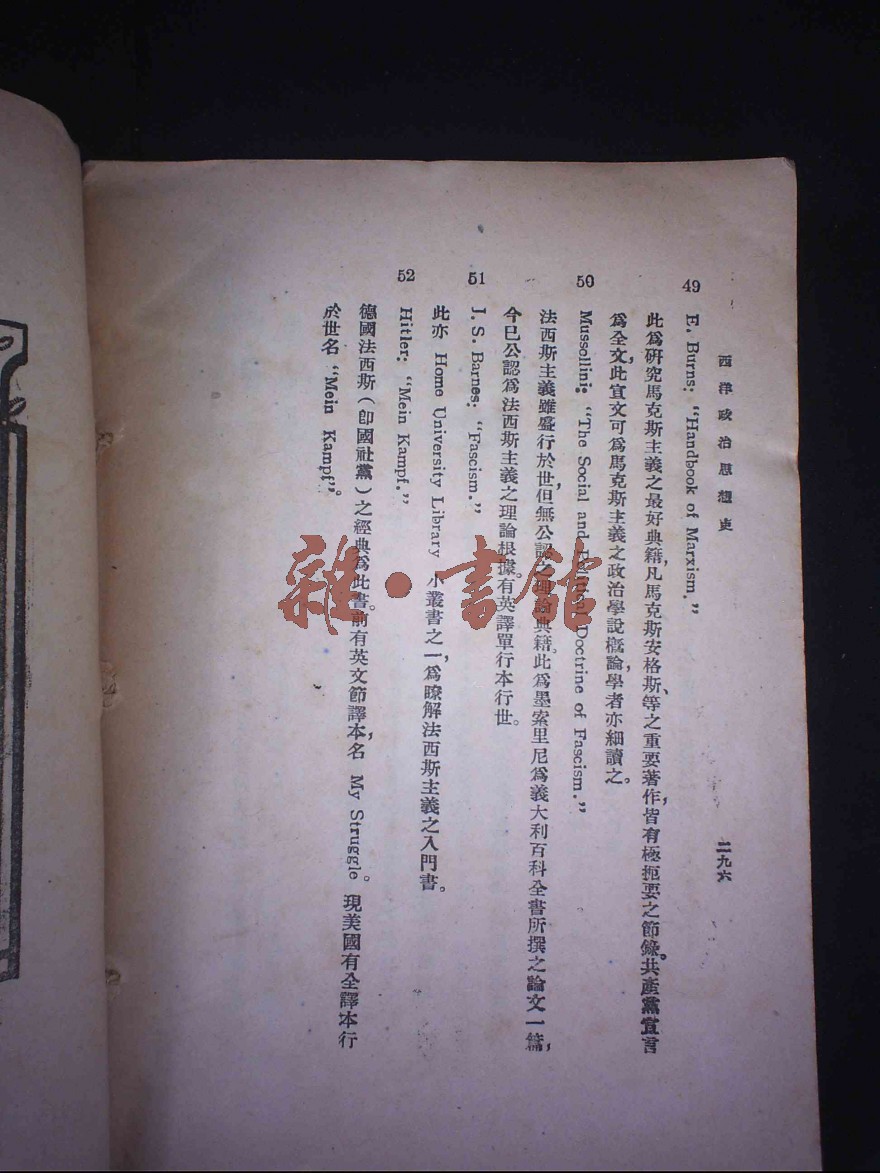 西洋政治思想史
二九六
49 E. Burns: “Handbook of Marxism.”
此爲研究馬克斯主義之最好典籍,凡馬克斯、安格斯等之重要著作,皆有極扼要之節錄。共產黨宣言
爲全文,此宣文可爲馬克斯主義之政治學說概論,學者亦細讀之。
50 Mussollini: “The Social and Political Doctrine of Fascism.”
法西斯主義雖盛行於世,但無公認之理論典籍。此爲墨索里尼爲義大利百科全書所撰之論文一篇,
今已公認爲法西斯主義之理論根據,有英譯單行本行世。
51 J. S. Barnes: “Fascism.”
此亦 Home University Library 小叢書之一,爲瞭解法西斯主義之入門書。
52 Hitler: “Mein Kampf.”
德國法西斯(卽國社黨)之經典爲此書。前有英文節譯本,名 My Struggle。現美國有全譯本行
於世,名 “Mein Kampf”。
雜·書館